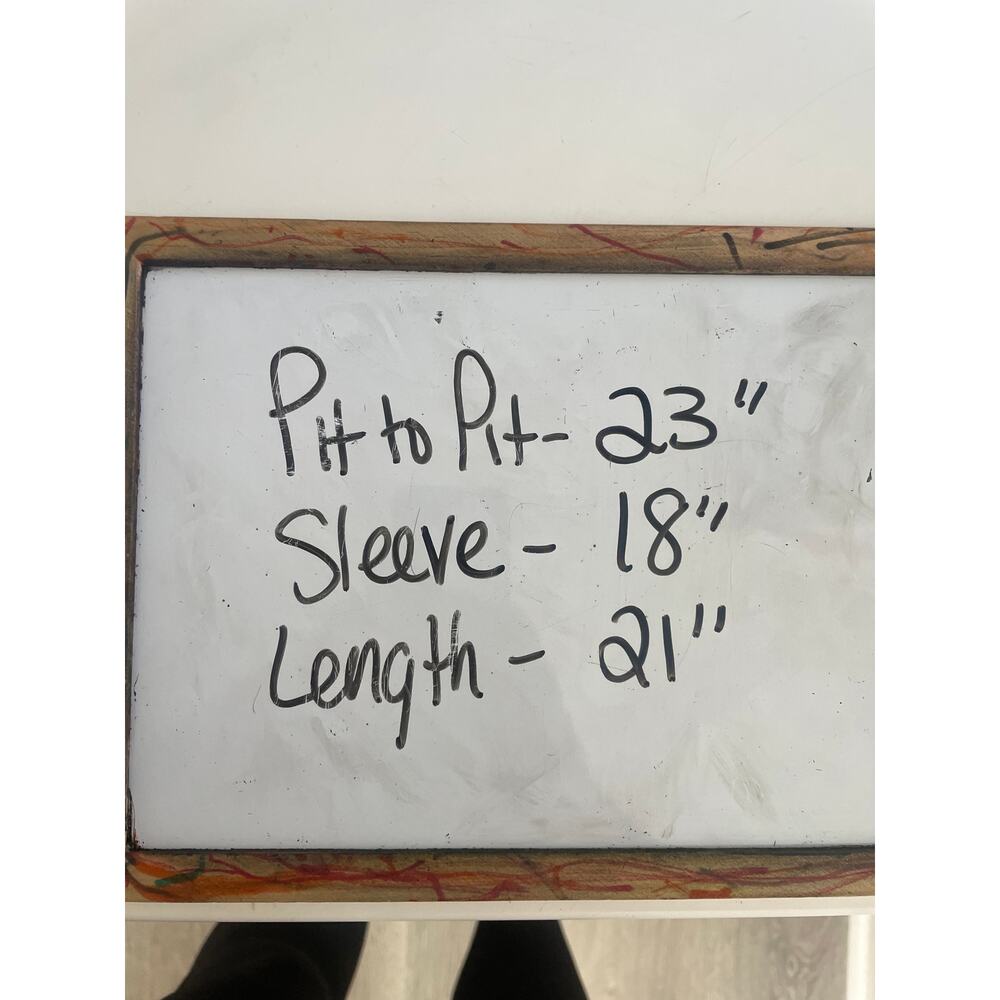 Pit to Pit - 23"
Sleeve - 18"
Length - 21"